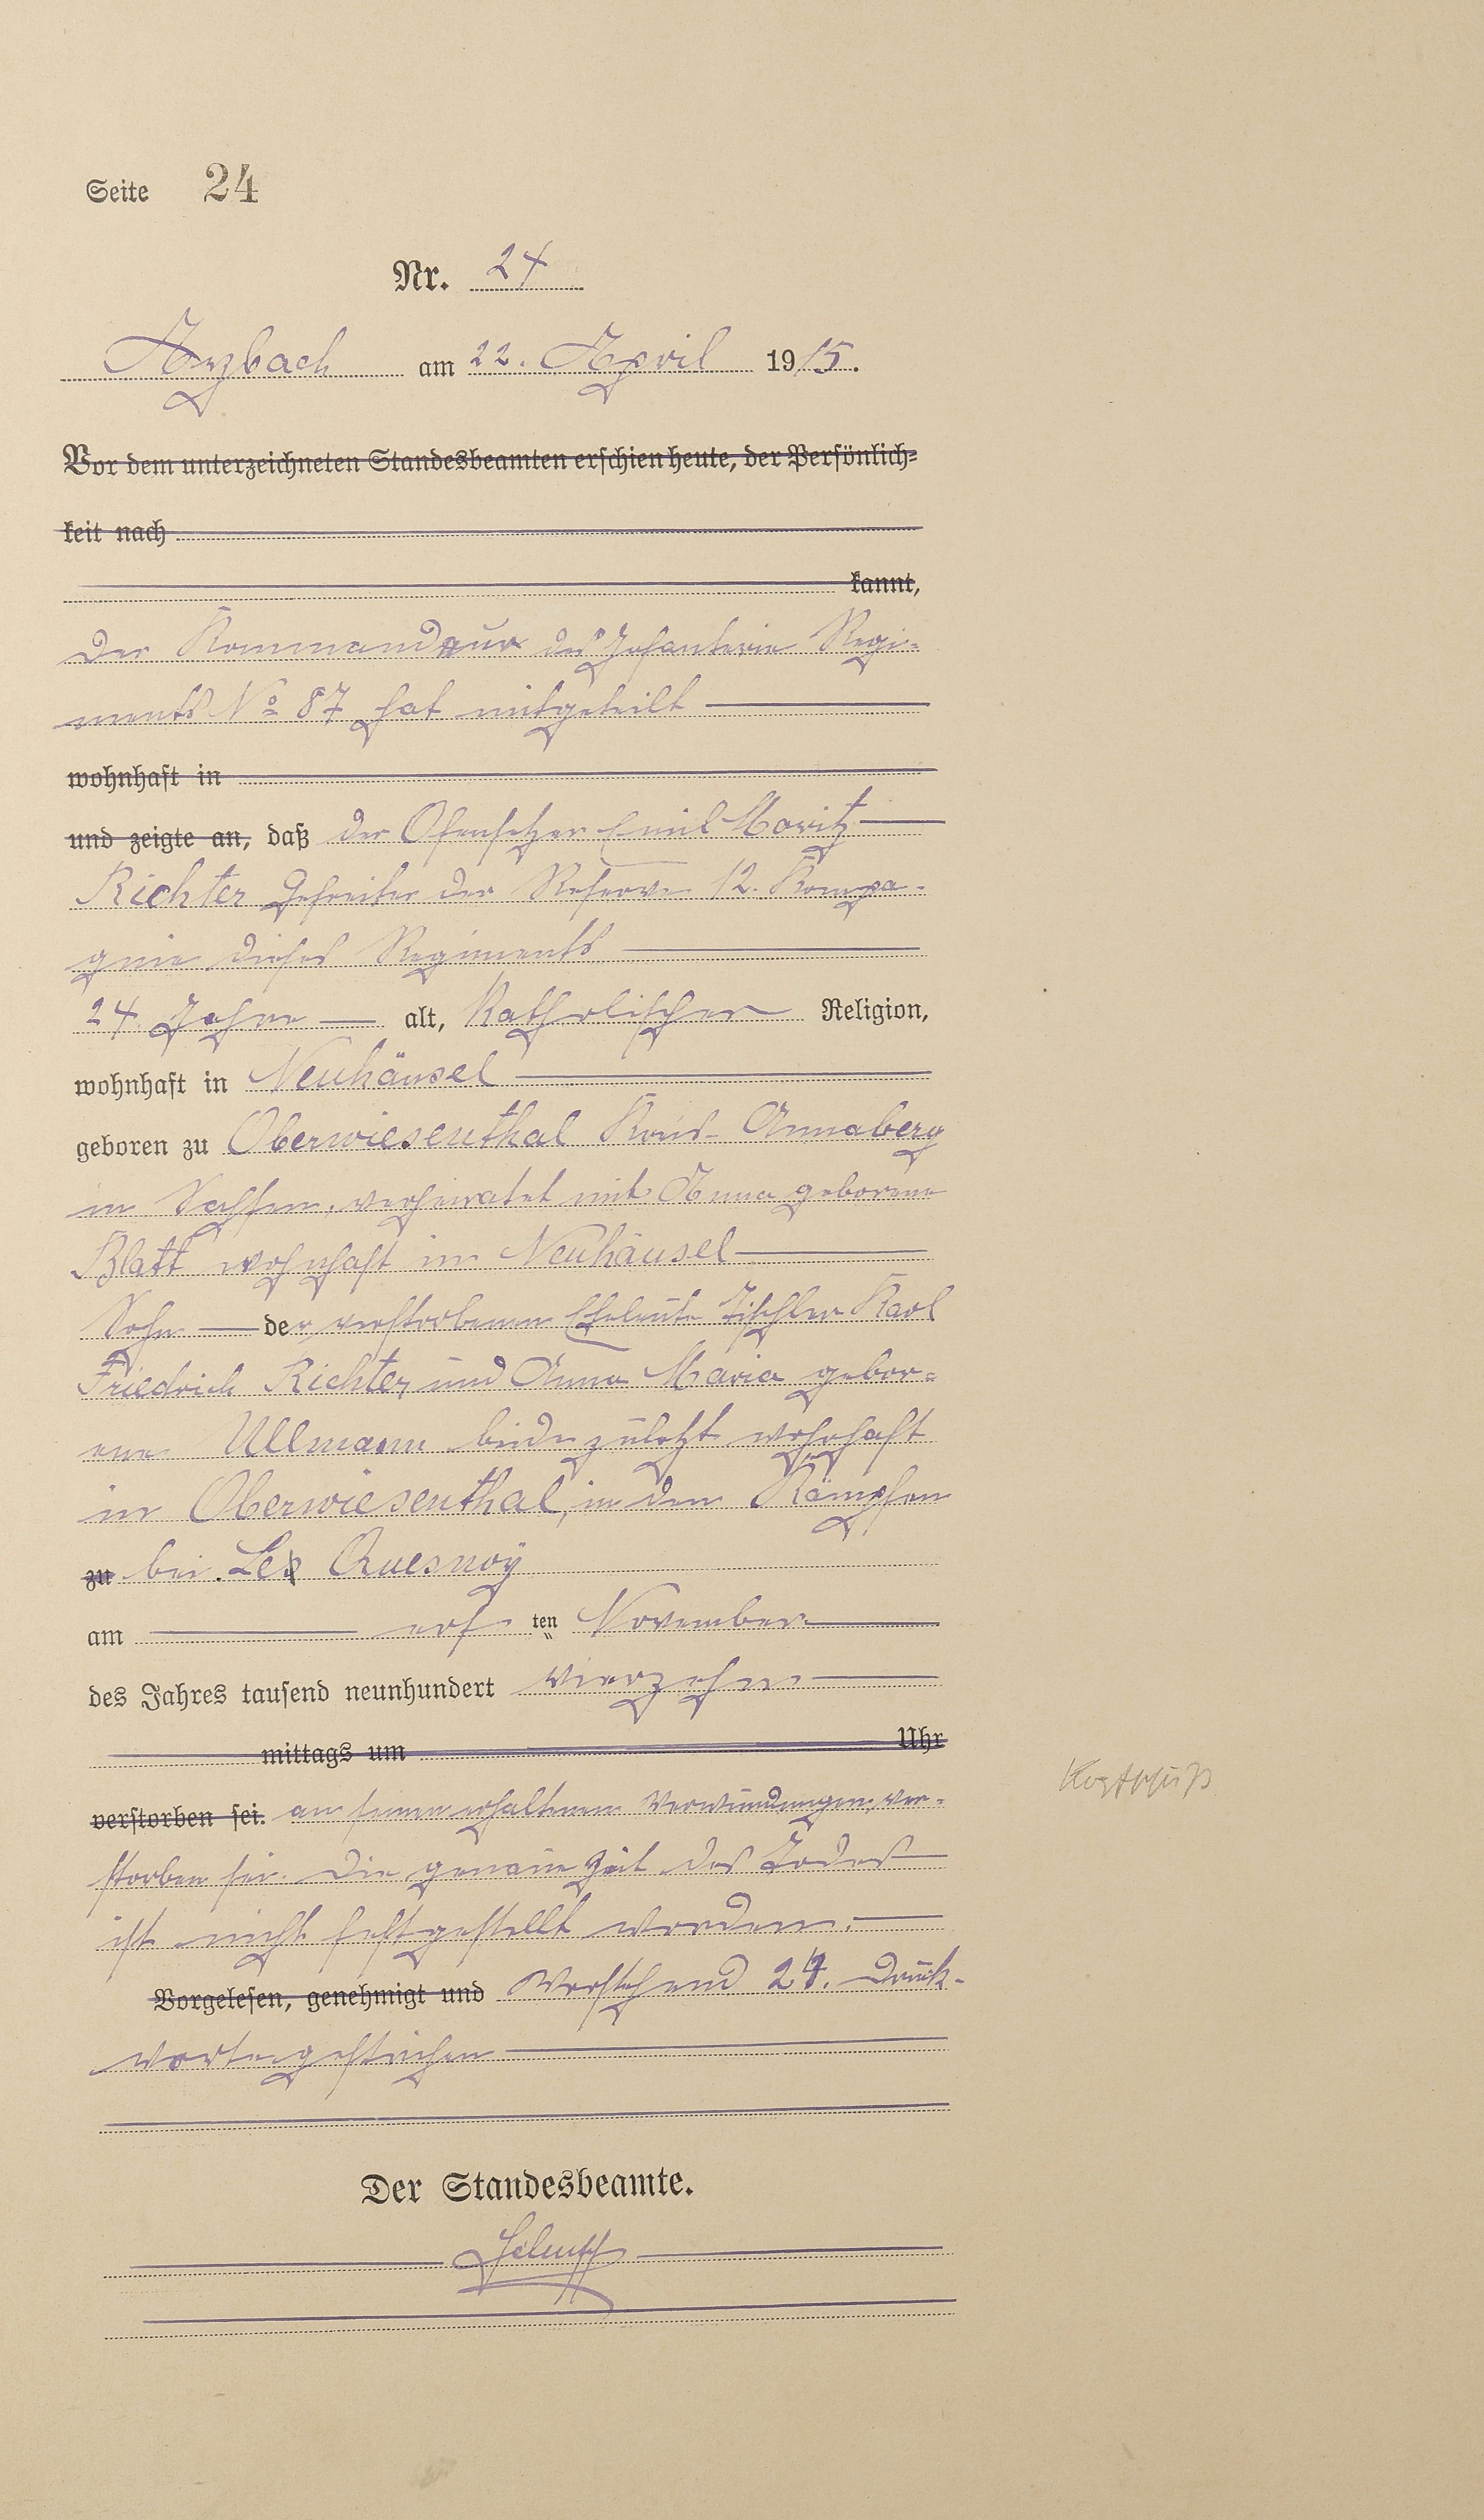 Seite 24
Nr. 24
Arzbach am 22. April 1915.
Vor dem unterzeichneten Standesbeamten erschien heute, der Persönlich-
keit nach
kannt,
Der Kommandeur des Infanterie Regi-
ments No 87 hat mitgeteilt
wohnhaft in
und zeigte an, daß der Ofensetzer Emil Moritz
Richter Gefreiter der Reserve 12. Kompa-
gnie dieses Regiments
24 Jahre alt, Katholischer Religion,
wohnhaft in Neuhäusel
geboren zu Oberwiesenthal Kreis Annaberg
in Sachsen, verheiratet mit Anna geborene
Blatt wohnhaft in Neuhäusel
Sohn der verstorbenen Eheleute Tischler Karl
Friedrich Richter und Anna Maria gebor-
ene Ullmann beide zuletzt wohnhaft
in Oberwiesenthal, in den Kämpfen
zu bei Le Quesnoy
am ten November
des Jahres tausend neunhundert vierzehn
mittags um Uhr
verstorben sei. an seinen erhaltenen Verwundungen ver-
storben sei. Die genaue Zeit des Todes
Kopfschuß
ist nicht festgestellt worden.
Vorgelesen, genehmigt und Vorstehend 24. Druck-
worte gestrichen
Der Standesbeamte.